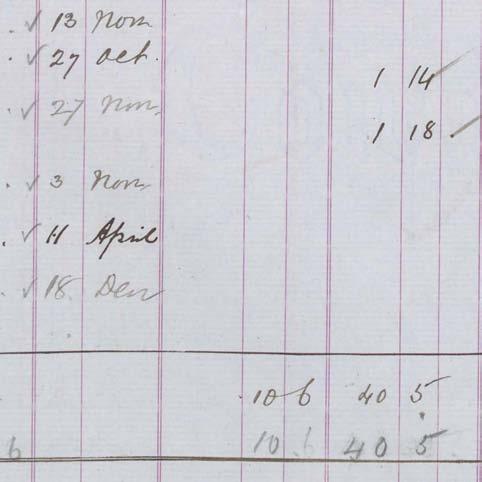 ✓ 13 Nov
✓ 27 Oct.
1 14
✓ 27 Nov
1 18
✓ 3 Nov
✓ 11 April
✓ 18 Dec
10 6 40 5
6 10 6 40 5